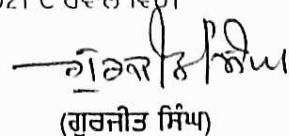 ਗੁਰਜੀਤ ਸਿੰਘ
(ਗੁਰਜੀਤ ਸਿੰਘ)